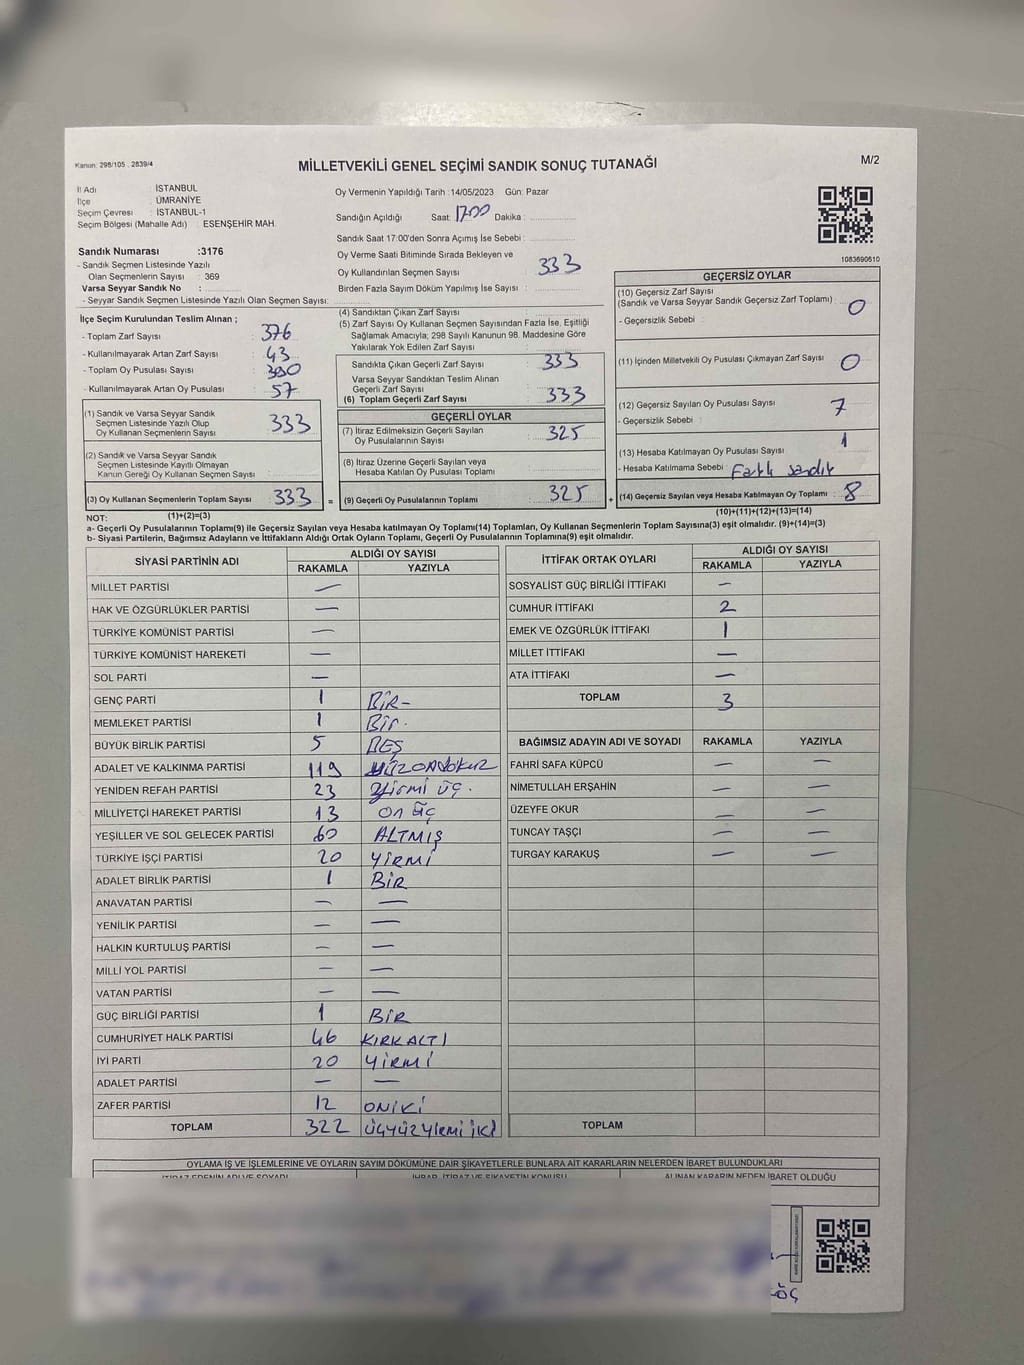 Kanun: 298/105 , 2839/4
MİLLETVEKİLİ GENEL SEÇİMİ SANDIK SONUÇ TUTANAĞI
M/2
İl Adı : İSTANBUL
İlçe : ÜMRANİYE
Seçim Çevresi : İSTANBUL-1
Seçim Bölgesi (Mahalle Adı) : ESENŞEHİR MAH.
Oy Vermenin Yapıldığı Tarih :14/05/2023 Gün: Pazar
Sandığın Açıldığı Saat: 17:00 Dakika :
Sandık Saat 17:00'den Sonra Açımış İse Sebebi :
Sandık Numarası :3176
- Sandık Seçmen Listesinde Yazılı
Olan Seçmenlerin Sayısı : 369
Varsa Seyyar Sandık No :
- Seyyar Sandık Seçmen Listesinde Yazılı Olan Seçmen Sayısı:
Oy Verme Saati Bitiminde Sırada Bekleyen ve
Oy Kullandırılan Seçmen Sayısı : 333
Birden Fazla Sayım Döküm Yapılmış İse Sayısı :
1083690610
İlçe Seçim Kurulundan Teslim Alınan ;
- Toplam Zarf Sayısı : 376
- Kullanılmayarak Artan Zarf Sayısı : 43
- Toplam Oy Pusulası Sayısı : 390
- Kullanılmayarak Artan Oy Pusulası : 57
(1) Sandık ve Varsa Seyyar Sandık
Seçmen Listesinde Yazılı Olup
Oy Kullanan Seçmenlerin Sayısı : 333
(2) Sandık ve Varsa Seyyar Sandık
Seçmen Listesinde Kayıtlı Olmayan
Kanun Gereği Oy Kullanan Seçmen Sayısı :
(3) Oy Kullanan Seçmenlerin Toplam Sayısı : 333
(1)+(2)=(3)
(4) Sandıktan Çıkan Zarf Sayısı :
(5) Zarf Sayısı Oy Kullanan Seçmen Sayısından Fazla İse, Eşitliği
Sağlamak Amacıyla; 298 Sayılı Kanunun 98. Maddesine Göre
Yakılarak Yok Edilen Zarf Sayısı :
Sandıkta Çıkan Geçerli Zarf Sayısı : 333
Varsa Seyyar Sandıktan Teslim Alınan
Geçerli Zarf Sayısı :
(6) Toplam Geçerli Zarf Sayısı : 333
GEÇERLİ OYLAR
(7) İtiraz Edilmeksizin Geçerli Sayılan
Oy Pusulalarının Sayısı : 325
(8) İtiraz Üzerine Geçerli Sayılan veya
Hesaba Katılan Oy Pusulası Toplamı :
= (9) Geçerli Oy Pusulalarının Toplamı : 325
GEÇERSİZ OYLAR
(10) Geçersiz Zarf Sayısı
(Sandık ve Varsa Seyyar Sandık Geçersiz Zarf Toplamı) : 0
- Geçersizlik Sebebi :
(11) İçinden Milletvekili Oy Pusulası Çıkmayan Zarf Sayısı : 0
(12) Geçersiz Sayılan Oy Pusulası Sayısı : 7
- Geçersizlik Sebebi :
(13) Hesaba Katılmayan Oy Pusulası Sayısı : 1
- Hesaba Katılmama Sebebi : Farklı sandık
+ (14) Geçersiz Sayılan veya Hesaba Katılmayan Oy Toplamı : 8
(10)+(11)+(12)+(13)=(14)
NOT:
a- Geçerli Oy Pusulalarının Toplamı(9) ile Geçersiz Sayılan veya Hesaba katılmayan Oy Toplamı(14) Toplamları, Oy Kullanan Seçmenlerin Toplam Sayısına(3) eşit olmalıdır. (9)+(14)=(3)
b- Siyasi Partilerin, Bağımsız Adayların ve İttifakların Aldığı Ortak Oyların Toplamı, Geçerli Oy Pusulalarının Toplamına(9) eşit olmalıdır.
SİYASİ PARTİNİN ADI ALDIĞI OY SAYISI
RAKAMLA YAZIYLA
MİLLET PARTİSİ —
HAK VE ÖZGÜRLÜKLER PARTİSİ —
TÜRKİYE KOMÜNİST PARTİSİ —
TÜRKİYE KOMÜNİST HAREKETİ —
SOL PARTİ —
GENÇ PARTİ 1 BİR-
MEMLEKET PARTİSİ 1 Bir.
BÜYÜK BİRLİK PARTİSİ 5 BEŞ
ADALET VE KALKINMA PARTİSİ 119 YÜZONDOKUZ
YENİDEN REFAH PARTİSİ 23 Yirmi üç.
MİLLİYETÇİ HAREKET PARTİSİ 13 On üç
YEŞİLLER VE SOL GELECEK PARTİSİ 60 ALTMIŞ
TÜRKİYE İŞÇİ PARTİSİ 20 YİRMİ
ADALET BİRLİK PARTİSİ 1 BİR
ANAVATAN PARTİSİ — —
YENİLİK PARTİSİ — —
HALKIN KURTULUŞ PARTİSİ — —
MİLLİ YOL PARTİSİ — —
VATAN PARTİSİ — —
GÜÇ BİRLİĞİ PARTİSİ 1 BİR
CUMHURİYET HALK PARTİSİ 46 KIRKALTI
İYİ PARTİ 20 YİRMİ
ADALET PARTİSİ — —
ZAFER PARTİSİ 12 ONİKİ
TOPLAM 322 ÜÇYÜZYİRMİ İKİ
İTTİFAK ORTAK OYLARI ALDIĞI OY SAYISI
RAKAMLA YAZIYLA
SOSYALİST GÜÇ BİRLİĞİ İTTİFAKI —
CUMHUR İTTİFAKI 2
EMEK VE ÖZGÜRLÜK İTTİFAKI 1
MİLLET İTTİFAKI —
ATA İTTİFAKI —
TOPLAM 3
BAĞIMSIZ ADAYIN ADI VE SOYADI RAKAMLA YAZIYLA
FAHRİ SAFA KÜPCÜ — —
NİMETULLAH ERŞAHİN — —
ÜZEYFE OKUR — —
TUNCAY TAŞÇI — —
TURGAY KARAKUŞ — —
TOPLAM
OYLAMA İŞ VE İŞLEMLERİNE VE OYLARIN SAYIM DÖKÜMÜNE DAİR ŞİKAYETLERLE BUNLARA AİT KARARLARIN NELERDEN İBARET BULUNDUKLARI
İTİRAZ EDENİN ADI VE SOYADI İHBAR, İTİRAZ VE ŞİKAYETİN KONUSU ALINAN KARARIN NEDEN İBARET OLDUĞU